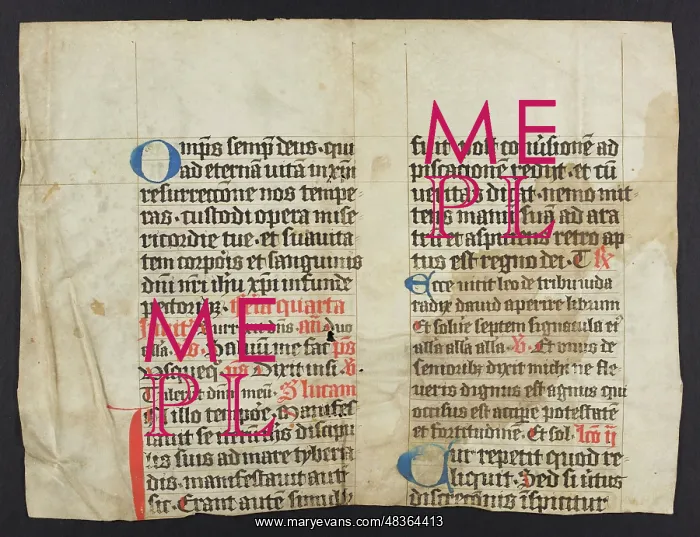 Omp̄s semp̄ deus · qui
ad eternā uitā in xp̄i
resurrectōne nos tempe
ras · custodi opera mise
ricordie tue · et suauita
tem corporis et sanguinis
dn̄i nr̄i ihū xp̄i infunde
pectoribꝫ · feria quarta
Surrexit dn̄s
alla · me fac p̄s
Dixit insi · V
dn̄m meū · S lucam
In illo tempoꝛe · Manifes
tauit se discipu
lis suis ad mare tyberia
dis · manifestauit autē
sic · Erant autē simul
fuit post conūsionē ad
piscationē redijt · et cū
ueritas dicat · nemo mit
tens manū suā ad ara
trū et aspiciens retro ap
tus est regno dei · T R
Ecce uicit leo de tribu iuda
radix dauid aperire librum
Et solue septem signacula ei
alla alla alla · V · Et vnus de
senioribꝫ dyxit michi ne fle
ueris dignus est agnus qui
occisus est accipe potestatē
et fortitudinē · Et sol · Lco ij
Cur repetit quod re
liquit · Sed si uirtus
discrecōnis īspicitur
ME
PL
ME
PL
www.maryevans.com/48364413